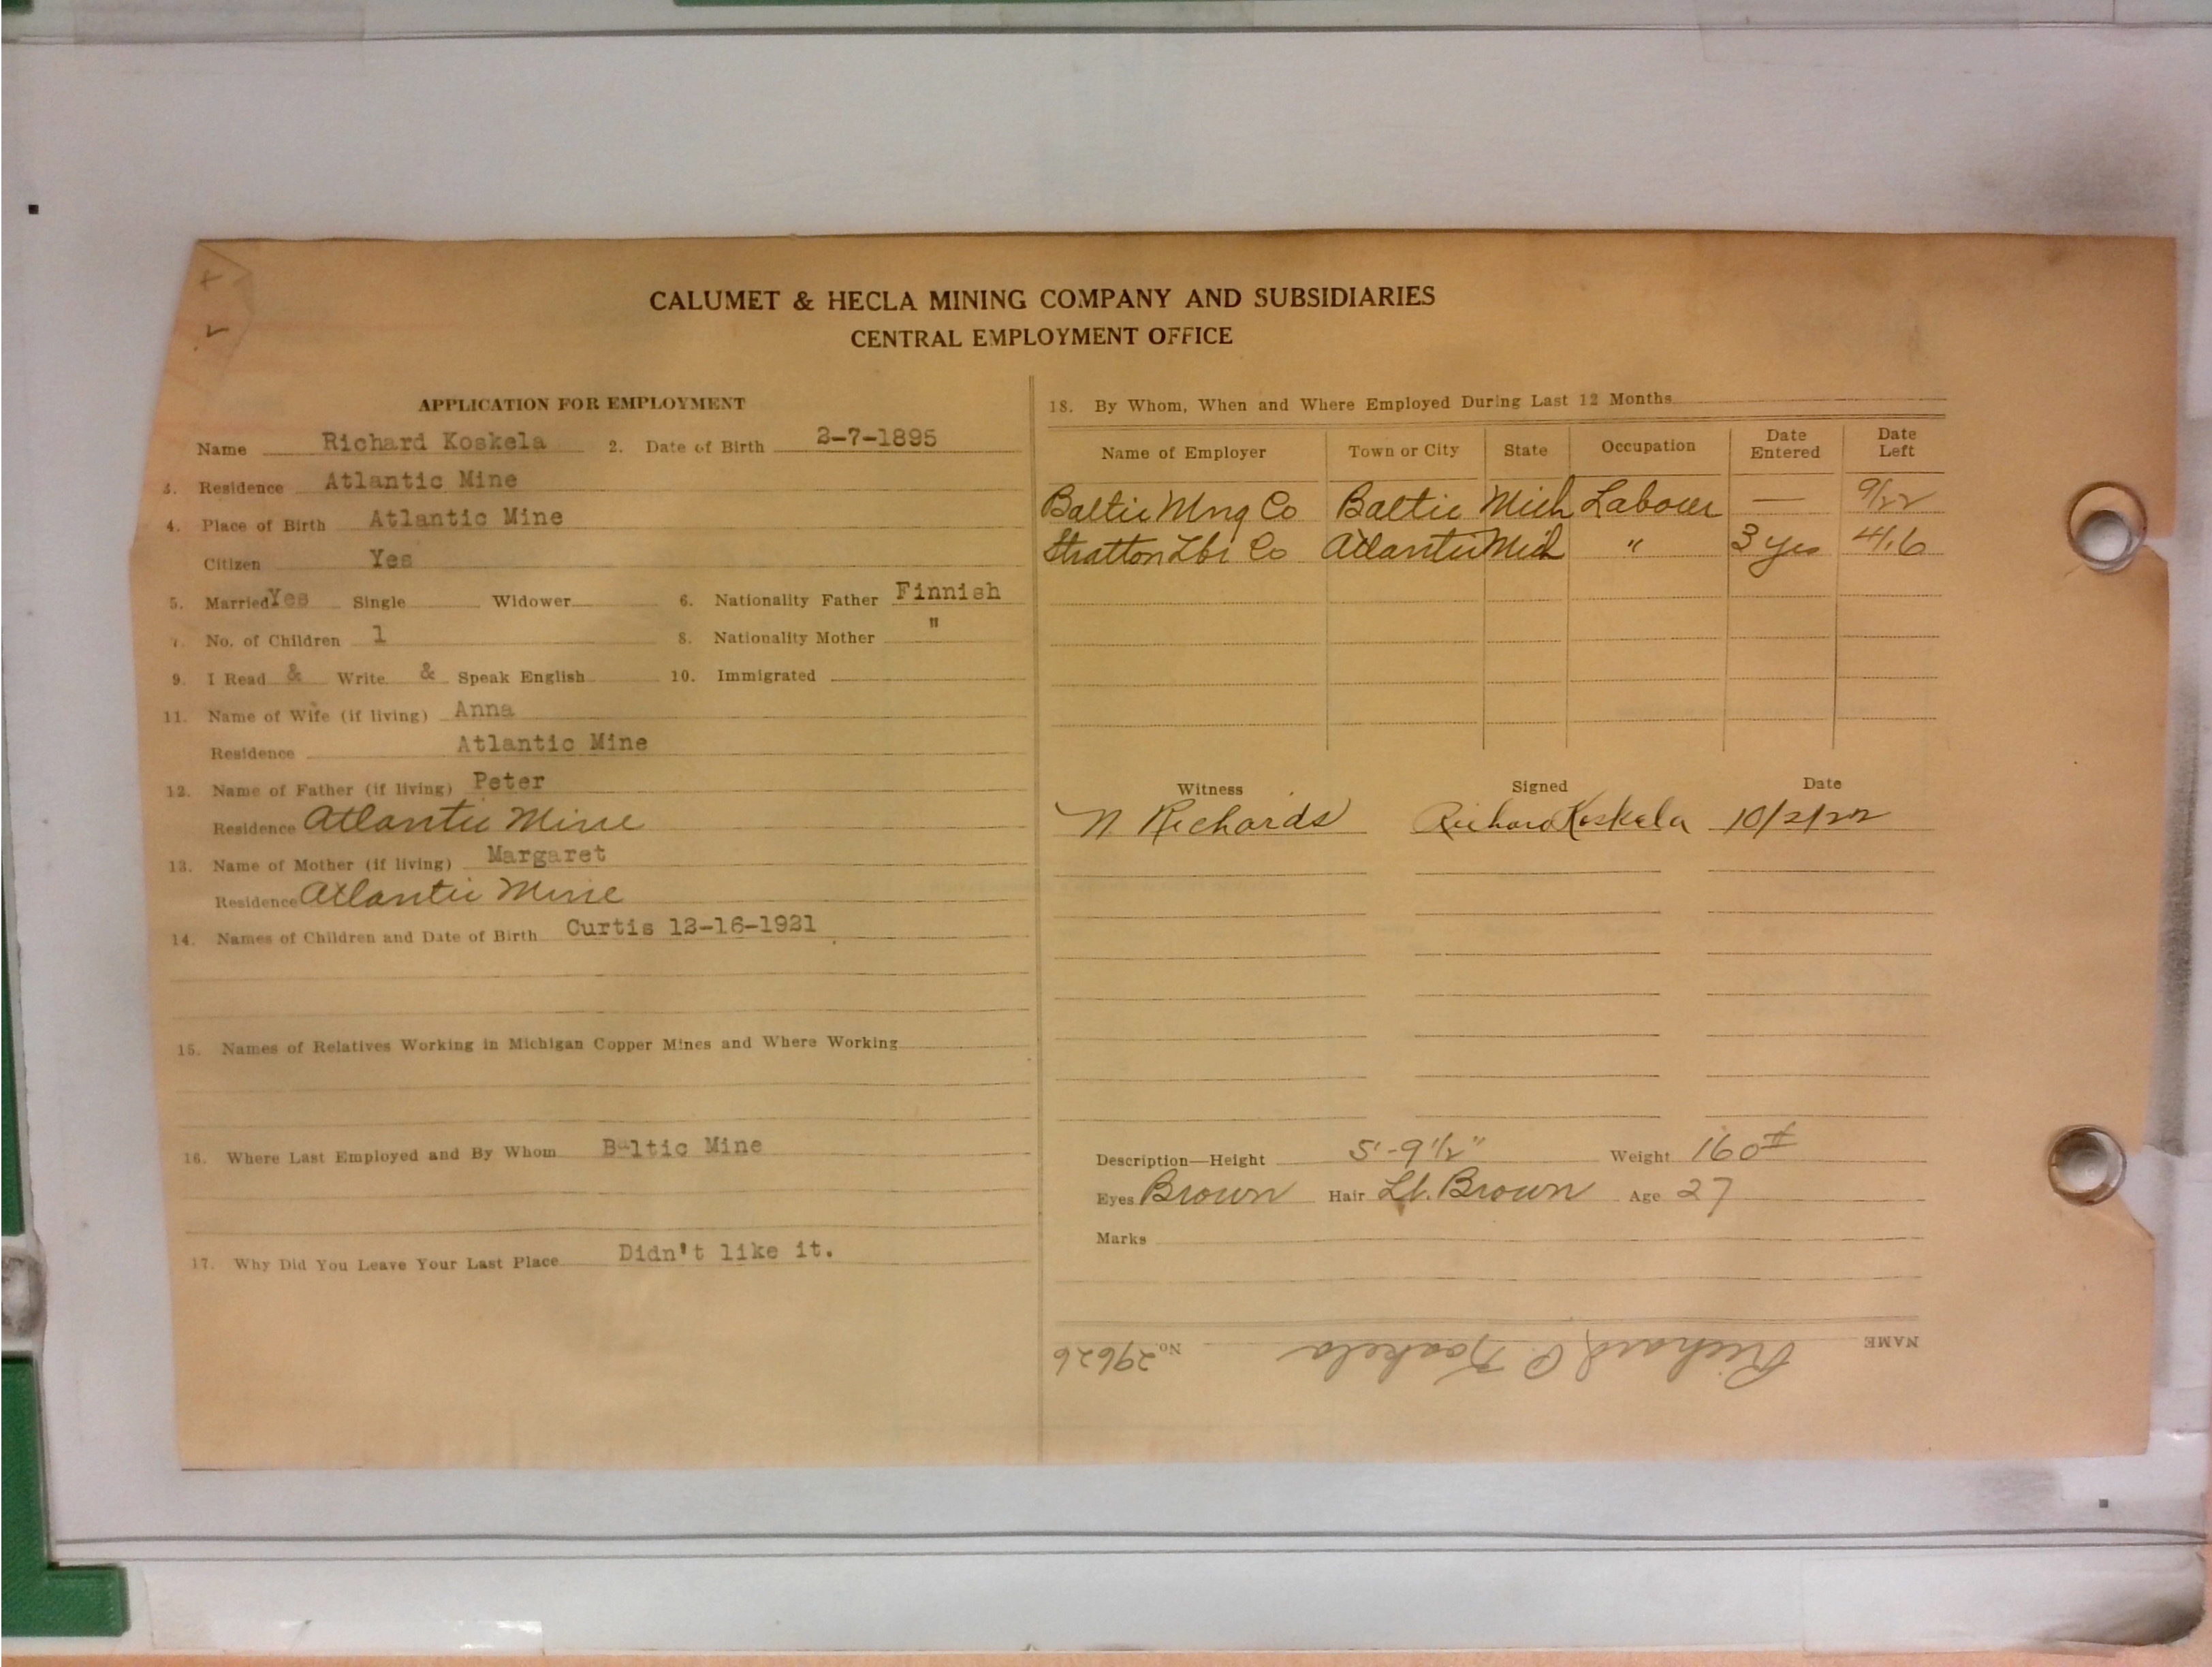 CALUMET & HECLA MINING COMPANY AND SUBSIDIARIES
CENTRAL EMPLOYMENT OFFICE
APPLICATION FOR EMPLOYMENT
Name Richard Koskela 2. Date of Birth 2-7-1895
3. Residence Atlantic Mine
4. Place of Birth Atlantic Mine
Citizen Yes
5. Married Yes Single Widower 6. Nationality Father Finnish
7. No. of Children 1 8. Nationality Mother "
9. I Read & Write & Speak English 10. Immigrated
11. Name of Wife (if living) Anna
Residence Atlantic Mine
12. Name of Father (if living) Peter
Residence Atlantic Mine
13. Name of Mother (if living) Margaret
Residence Atlantic Mine
14. Names of Children and Date of Birth Curtis 12-16-1921
15. Names of Relatives Working in Michigan Copper Mines and Where Working
16. Where Last Employed and By Whom Baltic Mine
17. Why Did You Leave Your Last Place Didn't like it.
18. By Whom, When and Where Employed During Last 12 Months
Name of Employer Town or City State Occupation Date Entered Date Left
Baltic Mng Co Baltic Mich Labour — 9/22
Stratton Lbr Co Atlantic Mich " 3 yrs
Witness Signed Date
N Richards Richard Koskela 10/2/22
Description—Height 5'-9 1/2" Weight 160#
Eyes Brown Hair Lt. Brown Age 27
Marks
NAME Richard P. Koskela No. 29626